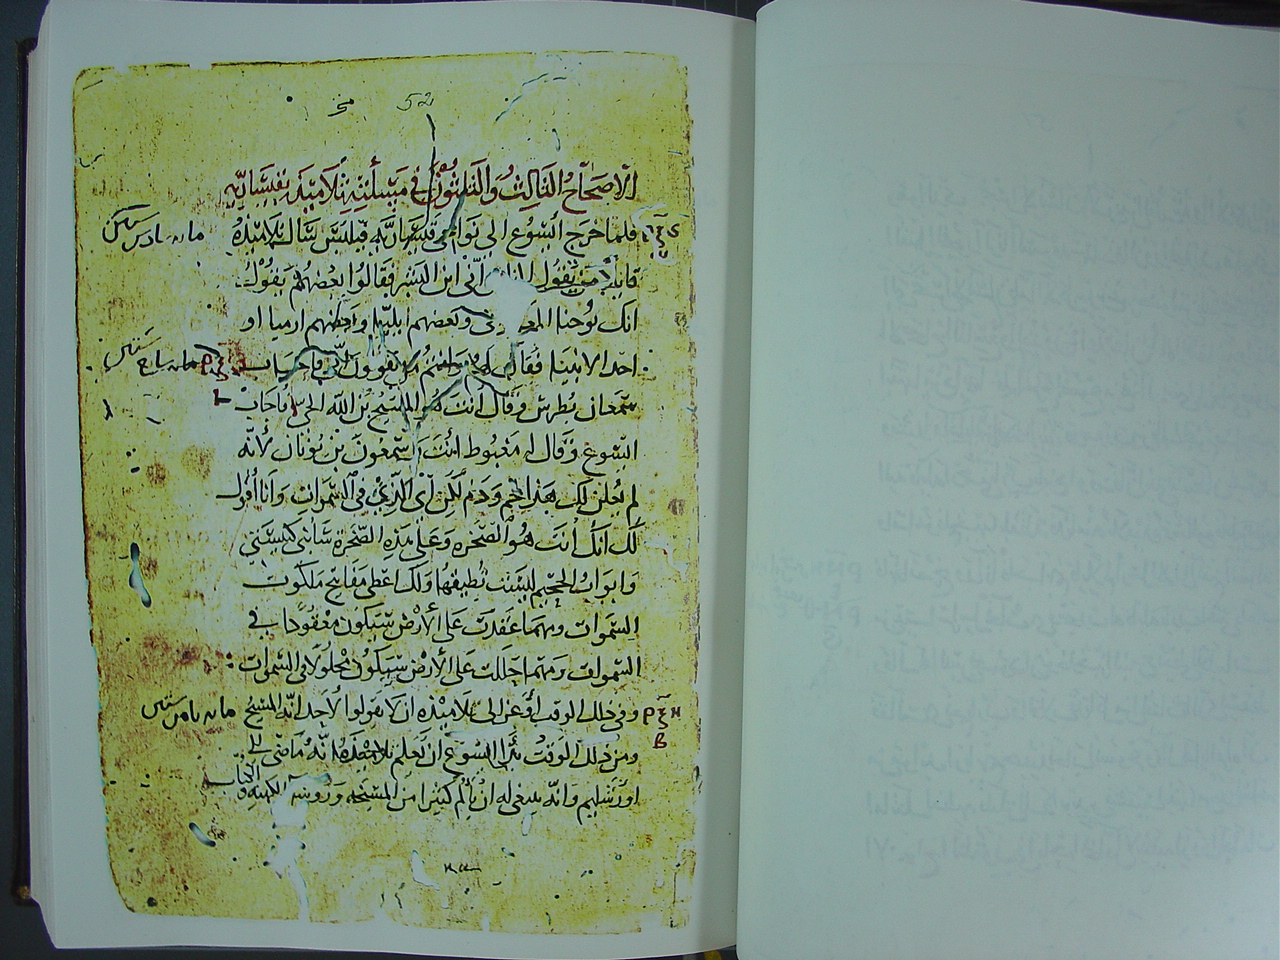 52
الاصحاح الثالث والثلثون في مسألته تلاميذه بقيسارية
فلما خرج ايسوع الى نواحي قيسارية فيلبس سال تلاميذه
قايلا من يقول الناس اني ابن البشر فقالوا بعضهم يقول
انك يوحنا وبعضهم ايليا وبعضهم ارميا او
احد الانبيا فقال لهم وانتم من تقولون اني فاجاب
سمعان بطرس وقال انت هو المسيح بن الله الحي فاجاب
ايسوع وقال له مغبوط انت يا سمعون بن يونان لأنه
لم يعلن لك هذا لحم ودم لكن أبي الذي في السموات وأنا أقول
لك انك أنت هو الصخره وعلى هذه الصخرة سابني كنيستي
وابواب الجحيم ليست تطيقها ولك اعطي مفاتيح ملكوت
السموات ومهما عقدت على الأرض سيكون معقودا في
السموات ومهما حللت على الأرض سيكون محلولا في السموات
وفي ذلك الوقت أوعز الى تلاميذه ان لا يقولوا لأحد انه المسيح
ومن ذلك الوقت بدأ ايسوع ان يعلم تلاميذه انه ماضي الى
اورشليم وانه ينبغي له ان يألم كثيرا من المشيخه وروسا الكهنه و
الكتاب